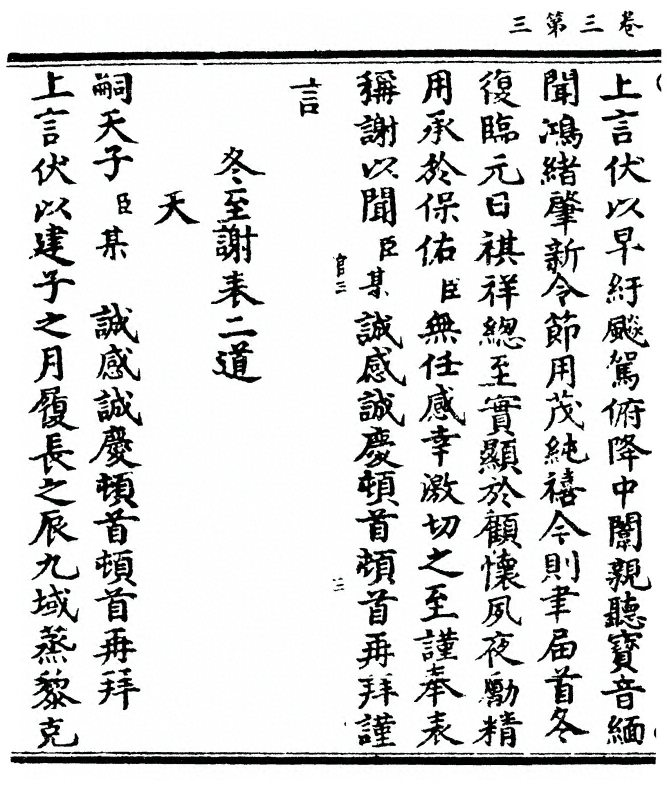 卷三第三
上言伏以早紆飈駕俯降中闈親聽寳音緬
聞鴻緒肇新令節用茂純禧今則聿届首冬
復臨元日祺祥總至實顯於顧懷夙夜勵精
用承於保佑臣無任感幸激切之至謹奉表
稱謝以聞臣某誠感誠慶頓首頓首再拜謹
言
冬至謝表二道
天
嗣天子臣某 誠感誠慶頓首頓首再拜
上言伏以建子之月履長之辰九域蒸黎克